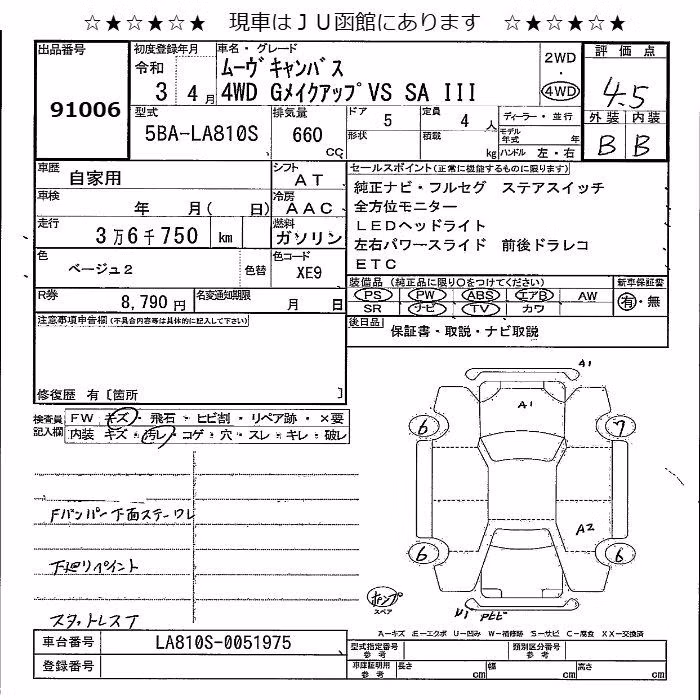 ☆★☆★☆★ 現車はＪＵ函館にあります ☆★☆★☆★
出品番号
91006
初度登録年月
令和
3 4月
車名・グレード
ムーヴキャンバス
4WD GメイクアップVS SA III
2WD
・
4WD
評価点
4.5
外装 内装
B B
型式
5BA-LA810S
排気量
660
CC
ドア 5
形状
定員 4 人
積載 kg
ディーラー・並行
モデル年式 年
ハンドル 左・右
車歴
自家用
シフト
AT
車検
年 月( 日)
冷房
AAC
走行
3万6千750 km
燃料
ガソリン
色
ベージュ2
色替
色コード
XE9
R券
8,790円
名変通知期限
月 日
セールスポイント(正常に機能するものに限ります)
純正ナビ・フルセグ ステアスイッチ
全方位モニター
LEDヘッドライト
左右パワースライド 前後ドラレコ
ETC
装備品 (純正品に限り○をつけてください)
PS PW ABS エアB AW
SR ナビ TV カワ
新車保証書
有・無
後日品
保証書・取説・ナビ取説
注意事項申告欄(不具合内容等は具体的に記入して下さい)
修復歴 有〔箇所 〕
検査員記入欄
FW キズ・飛石・ヒビ割・リペア跡・×要
内装 キズ・汚レ・コゲ・穴・スレ・キレ・破レ
Fバンパー下面ステーワレ
下廻りペイント
スタットレスT
A1
A1
6
7
A2
6
6
ポンプ
スペア
U1
A-キズ E-エクボ U-凹ミ W-補修跡 S-サビ C-腐食 XX-交換済
車台番号
LA810S-0051975
登録番号
型式指定番号
参考
類別区分番号
参考
車庫証明用
参考
長さ cm
幅 cm
高さ cm